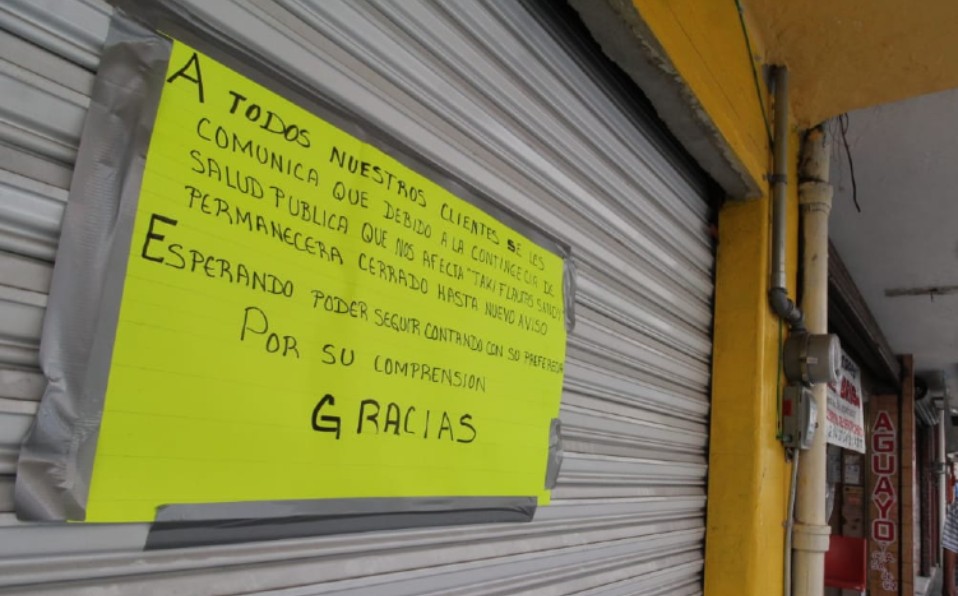 A TODOS NUESTROS CLIENTES SE LES
COMUNICA QUE DEBIDO A LA CONTINGECIA DE
SALUD PUBLICA QUE NOS AFECTA "TAKI FLAUTAS
PERMANECERA CERRADO HASTA NUEVO AVISO
ESPERANDO PODER SEGUIR CONTANDO CON SU
POR SU COMPRENSION
GRACIAS
AGUAYO